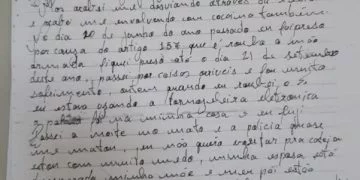 acabei me desviando através do
e acabei me envolvendo com cocaína também.
No dia 20 de junho do ano passado eu fui preso
por causa do artigo 157 que é roubo a mão
armada fiquei preso até o dia 21 de setembro
deste ano, passei por coisas terríveis e foi muito
sofrimento, ontem quando eu
eu estava usando a tornozeleira eletrônica
a foi na minha casa e eu fugi
Passei a noite no mato e a polícia quase
me matou, eu não quero voltar pra cadeia
estou com muito medo, minha esposa está
minha mãe e meu pai estão